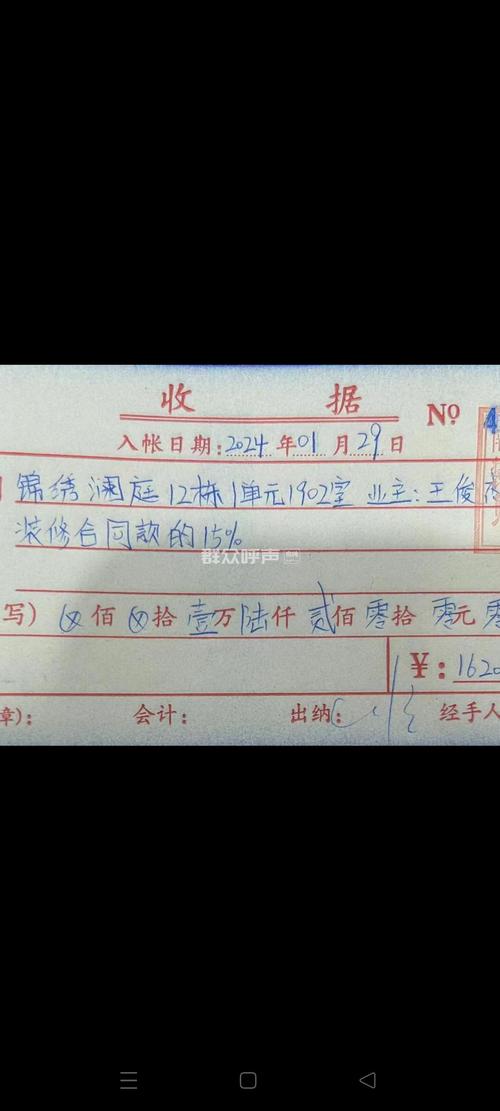 收 据 Nº
入帐日期:2024年01月29日
锦绣澜庭12栋1单元1902室 业主:王俊
装修合同款的15%
群众呼声
写)⊗佰⊗拾壹万陆仟贰佰零拾零元零
¥:1620
章): 会计: 出纳: 经手人